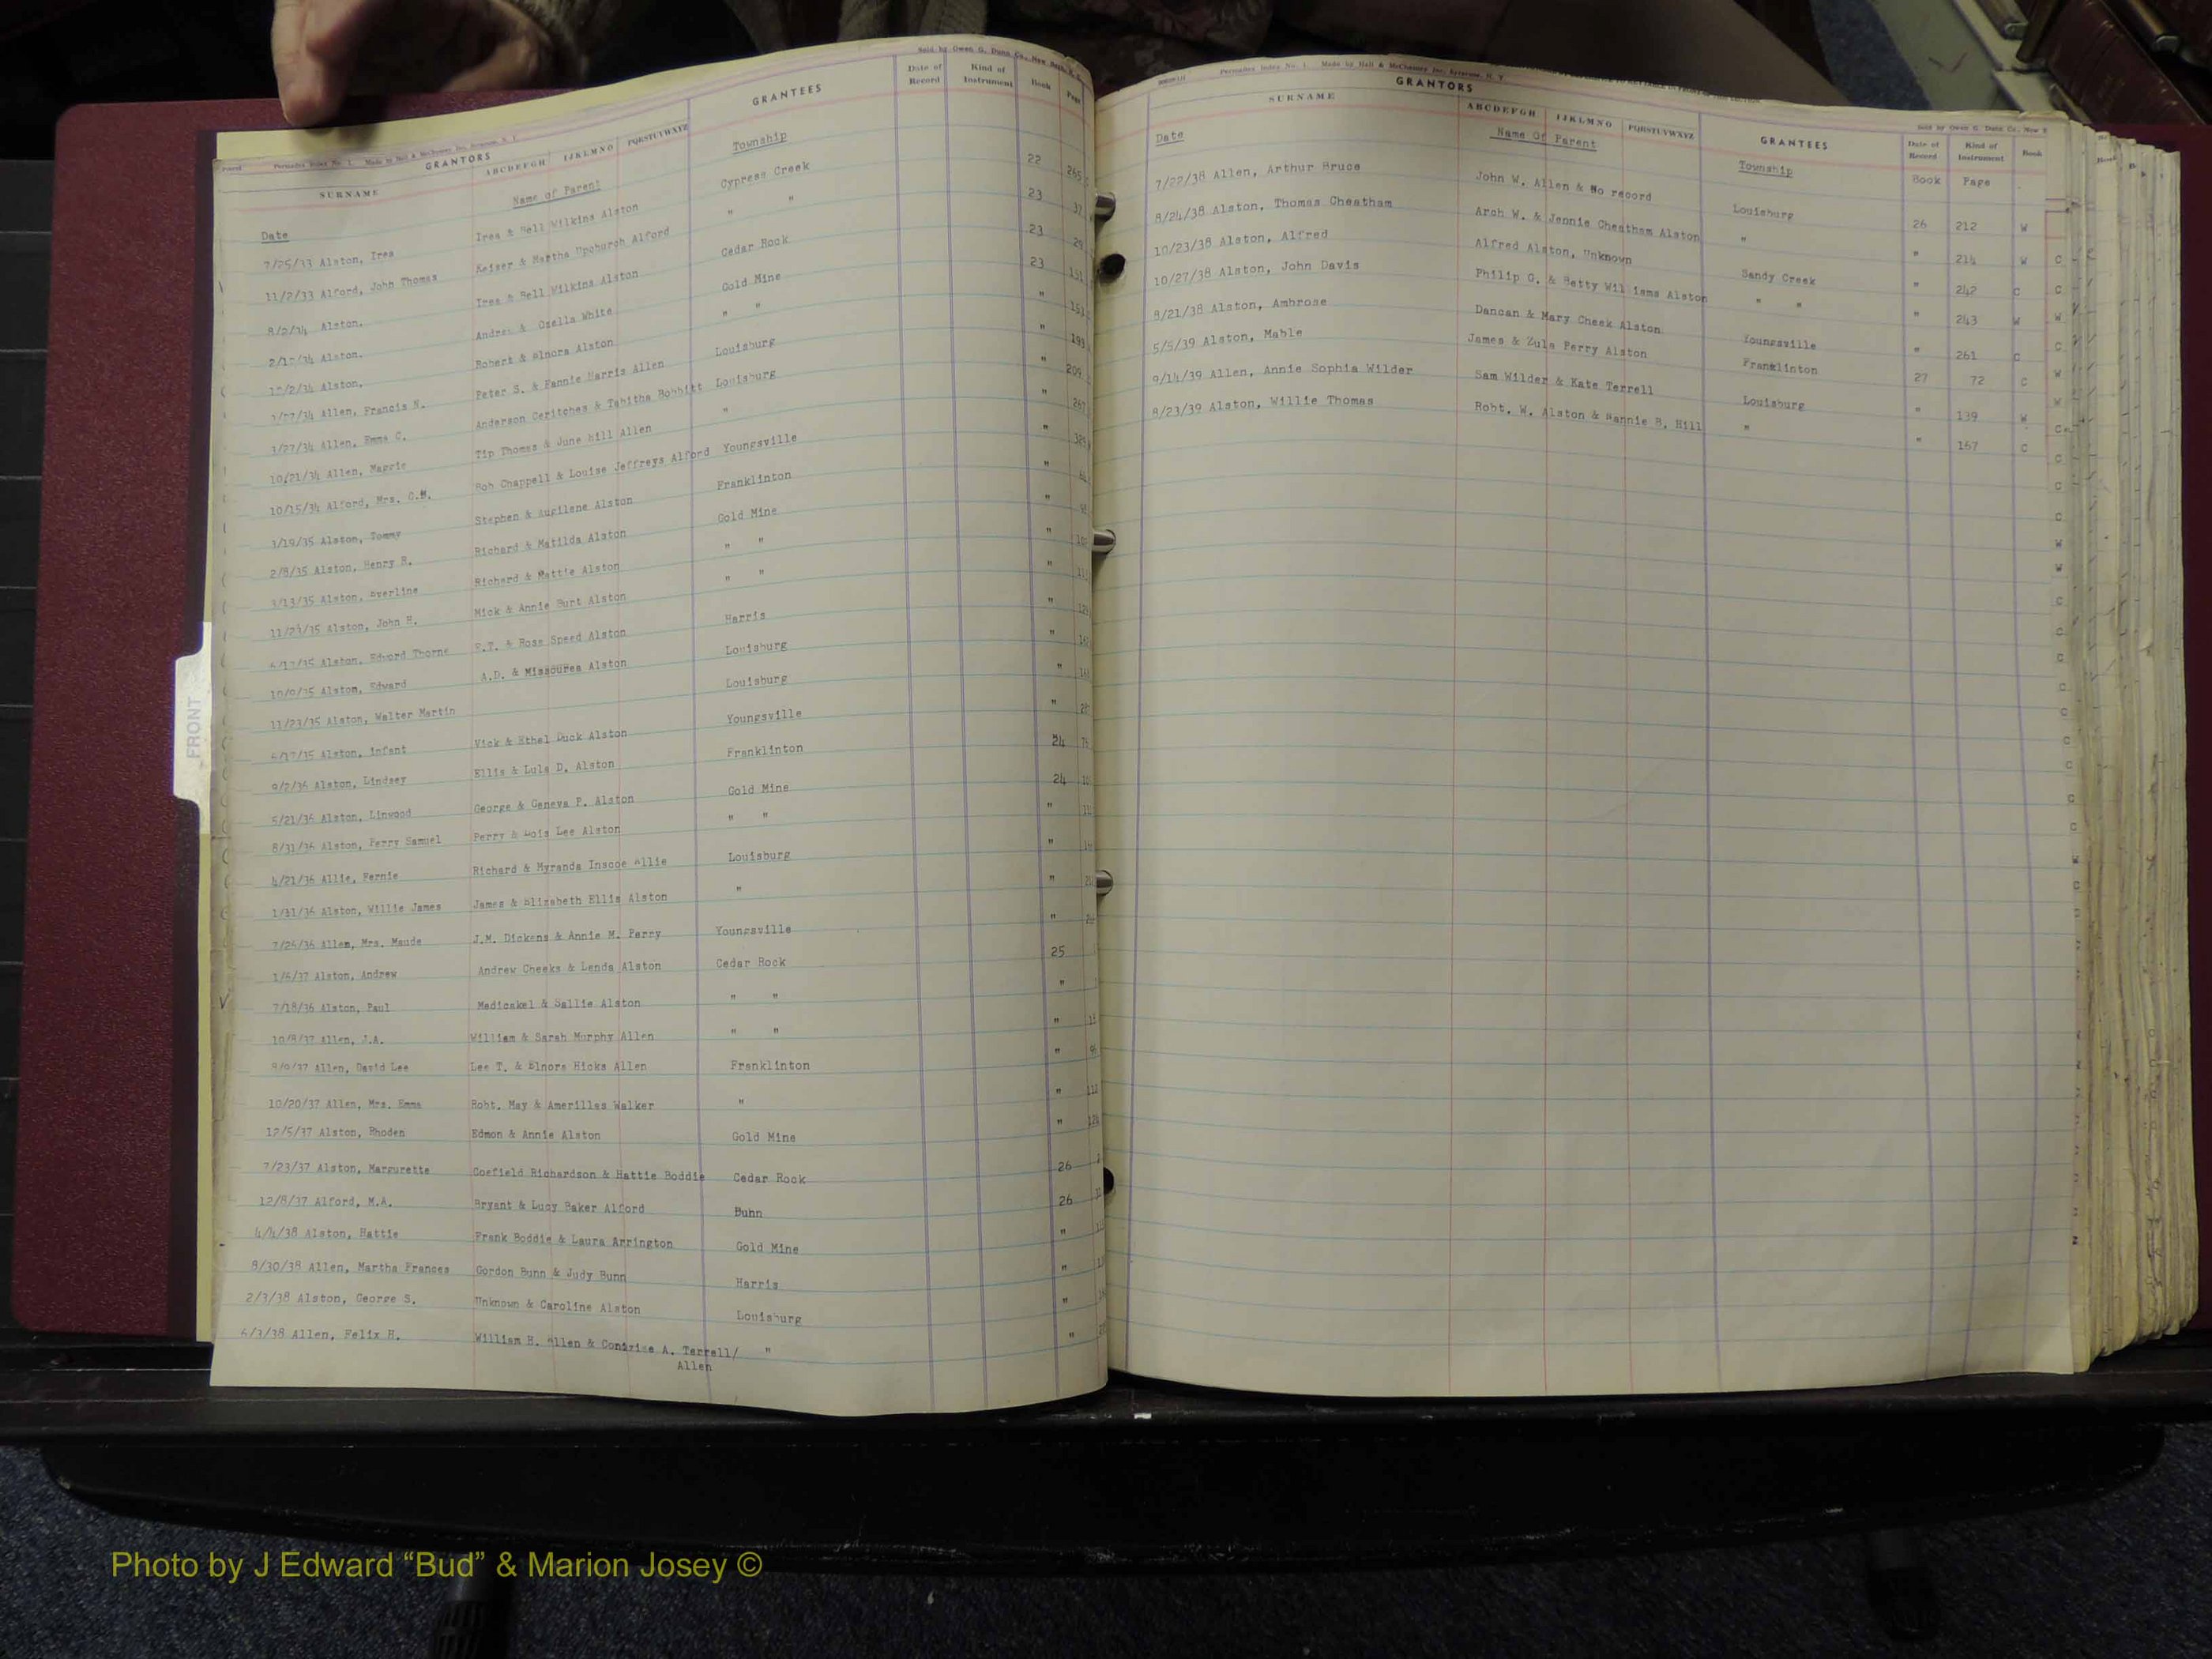 Sold by Owen G. Dunn Co., New Bern, N. C.
Permadex Index No. 1. Made by Hall & McChesney Inc. Syracuse, N. Y.
GRANTORS
SURNAME ABCDEFGH IJKLMNO PQRSTUVWXYZ GRANTEES Date of Record Kind of Instrument Book Page
Date Name of Parent Township
7/25/33 Alston, Irea Irea & Bell Wilkins Alston Cypress Creek 22 265
11/2/33 Alford, John Thomas Keiser & Martha Upchurch Alford " " 23
8/2/34 Alston. Irea & Bell Wilkins Alston Cedar Rock 23 29
Alston. & Ozella White Gold Mine 23 151
10/2/34 Alston. Robert & Elnora Alston " " " 153
Allen, Francis N. Peter S. & Fannie Harris Allen Louisburg "
Allen, Emma C. Anderson Ceritches & Tabitha Bobbitt Louisburg " 209
10/21/34 Allen, Tip Thomas & June Hill Allen " " 267
10/15/34 Alford, Mrs. G.M. Bob Chappell & Louise Jeffreys Alford Youngsville "
1/19/35 Alston, Tommy Stephen & Alston Franklinton "
2/8/35 Alston, Henry B. Richard & Matilda Alston Gold Mine "
3/13/35 Alston, Everline Richard & Mattie Alston " " "
11/23/35 Alston, John H. Mick & Annie Burt Alston " " "
Alston, Edward Thorne & Rose Speed Alston Harris "
10/9/35 Alston, Edward A.D. & Missourea Alston Louisburg "
11/23/35 Alston, Walter Martin Louisburg "
Alston, Infant Vick & Ethel Duck Alston Youngsville "
9/2/36 Alston, Lindsey Ellis & Lula D. Alston Franklinton 24 76
5/21/36 Alston, Linwood George & Geneva P. Alston Gold Mine 24
8/31/36 Alston, Perry Samuel Perry & Lois Lee Alston " " "
4/21/36 Allie, Fernie Richard & Myranda Inscoe Allie Louisburg "
Alston, Willie James James & Elizabeth Ellis Alston " "
7/26/36 Allen, Mrs. Maude J.M. Dickens & Annie M. Perry Youngsville "
Alston, Andrew Andrew Cheeks & Lenda Alston Cedar Rock 25
7/18/36 Alston, Paul Medicakel & Sallie Alston " " "
10/8/37 Allen, J.A. William & Sarah Murphy Allen " " "
8/9/37 Allen, David Lee Lee T. & Elnora Hicks Allen Franklinton "
10/20/37 Allen, Mrs. Emma Robt. May & Amerilles Walker " "
12/5/37 Alston, Rhoden Edmon & Annie Alston Gold Mine "
7/23/37 Alston, Margurette Coefield Richardson & Hattie Boddie Cedar Rock 26
12/8/37 Alford, M.A. Bryant & Lucy Baker Alford Duhn 26
4/4/38 Alston, Hattie Frank Boddie & Laura Arrington Gold Mine "
8/30/38 Allen, Martha Frances Gordon Bunn & Judy Bunn Harris "
2/3/38 Alston, George S. Unknown & Caroline Alston Louisburg "
Allen, Felix H. William H. Allen & A. Terrell/ " "
Allen
FRONT
Permadex Index No. 1 Made by Hall & McChesney Inc. Syracuse, N. Y.
Sold by Owen G. Dunn Co., New B
GRANTORS
SURNAME ABCDEFGH IJKLMNO PQRSTUVWXYZ GRANTEES Date of Record Kind of Instrument Book
Date Name Of Parent Township Book Page
7/22/38 Allen, Arthur Bruce John W. Allen & No record Louisburg 26 212 W
8/24/38 Alston, Thomas Cheatham Arch W. & Jennie Cheatham Alston " " 214 W
10/23/38 Alston, Alfred Alfred Alston, Unknown Sandy Creek " 242 C
10/27/38 Alston, John Davis Philip G. & Betty Williams Alston " " " 243 W
8/21/38 Alston, Ambrose Dancan & Mary Cheek Alston Youngsville " 261 C
5/5/39 Alston, Mable James & Zula Perry Alston Franklinton 27 72 C
9/14/39 Allen, Annie Sophia Wilder Sam Wilder & Kate Terrell Louisburg " 139 W
8/23/39 Alston, Willie Thomas Robt. W. Alston & Nannie B. Hill " " 167 C
Photo by J Edward “Bud” & Marion Josey ©